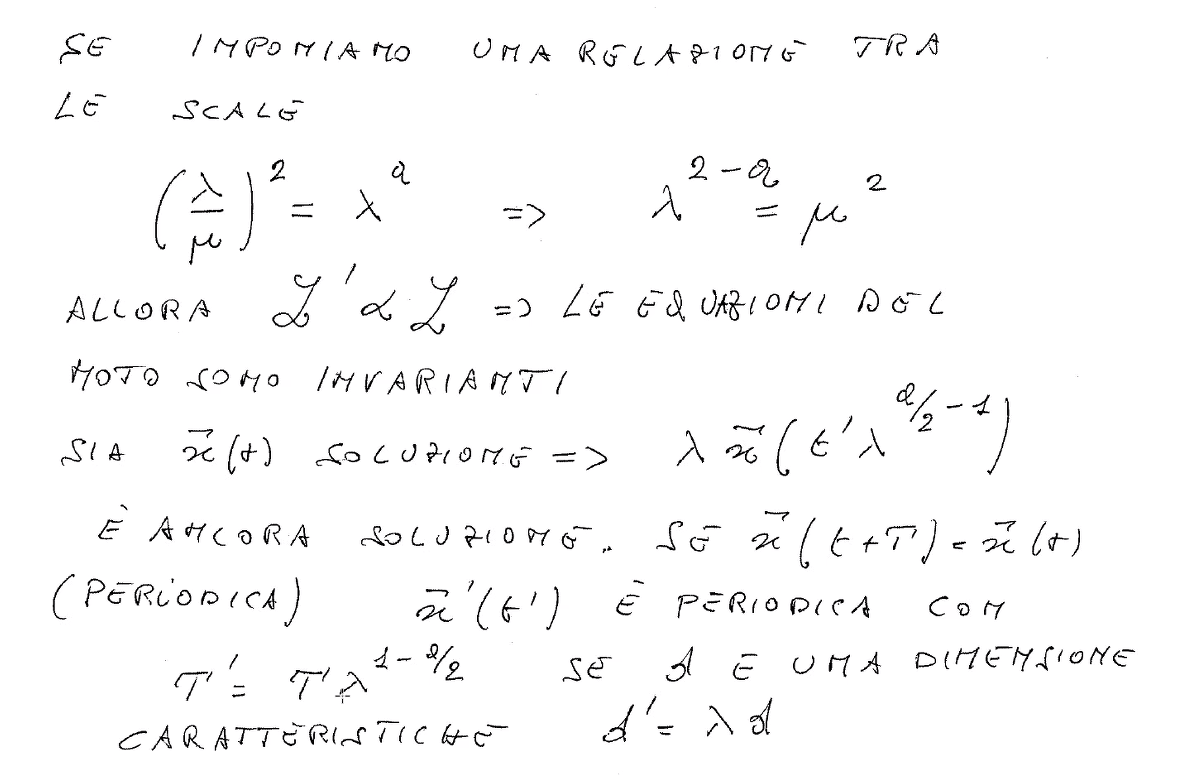 SE IMPONIAMO UNA RELAZIONE TRA
LE SCALE
(λ/μ)² = λ^a => λ^(2-a) = μ²
ALLORA ℒ' ∝ ℒ => LE EQUAZIONI DEL
MOTO SONO INVARIANTI
SIA x⃗(t) SOLUZIONE => λ x⃗(t' λ^(a/2-1))
È ANCORA SOLUZIONE. SE x⃗(t+T) = x⃗(t)
(PERIODICA) x⃗'(t') È PERIODICA CON
T' = T λ^(1-a/2) SE d E UNA DIMENSIONE
CARATTERISTICHE d' = λ d